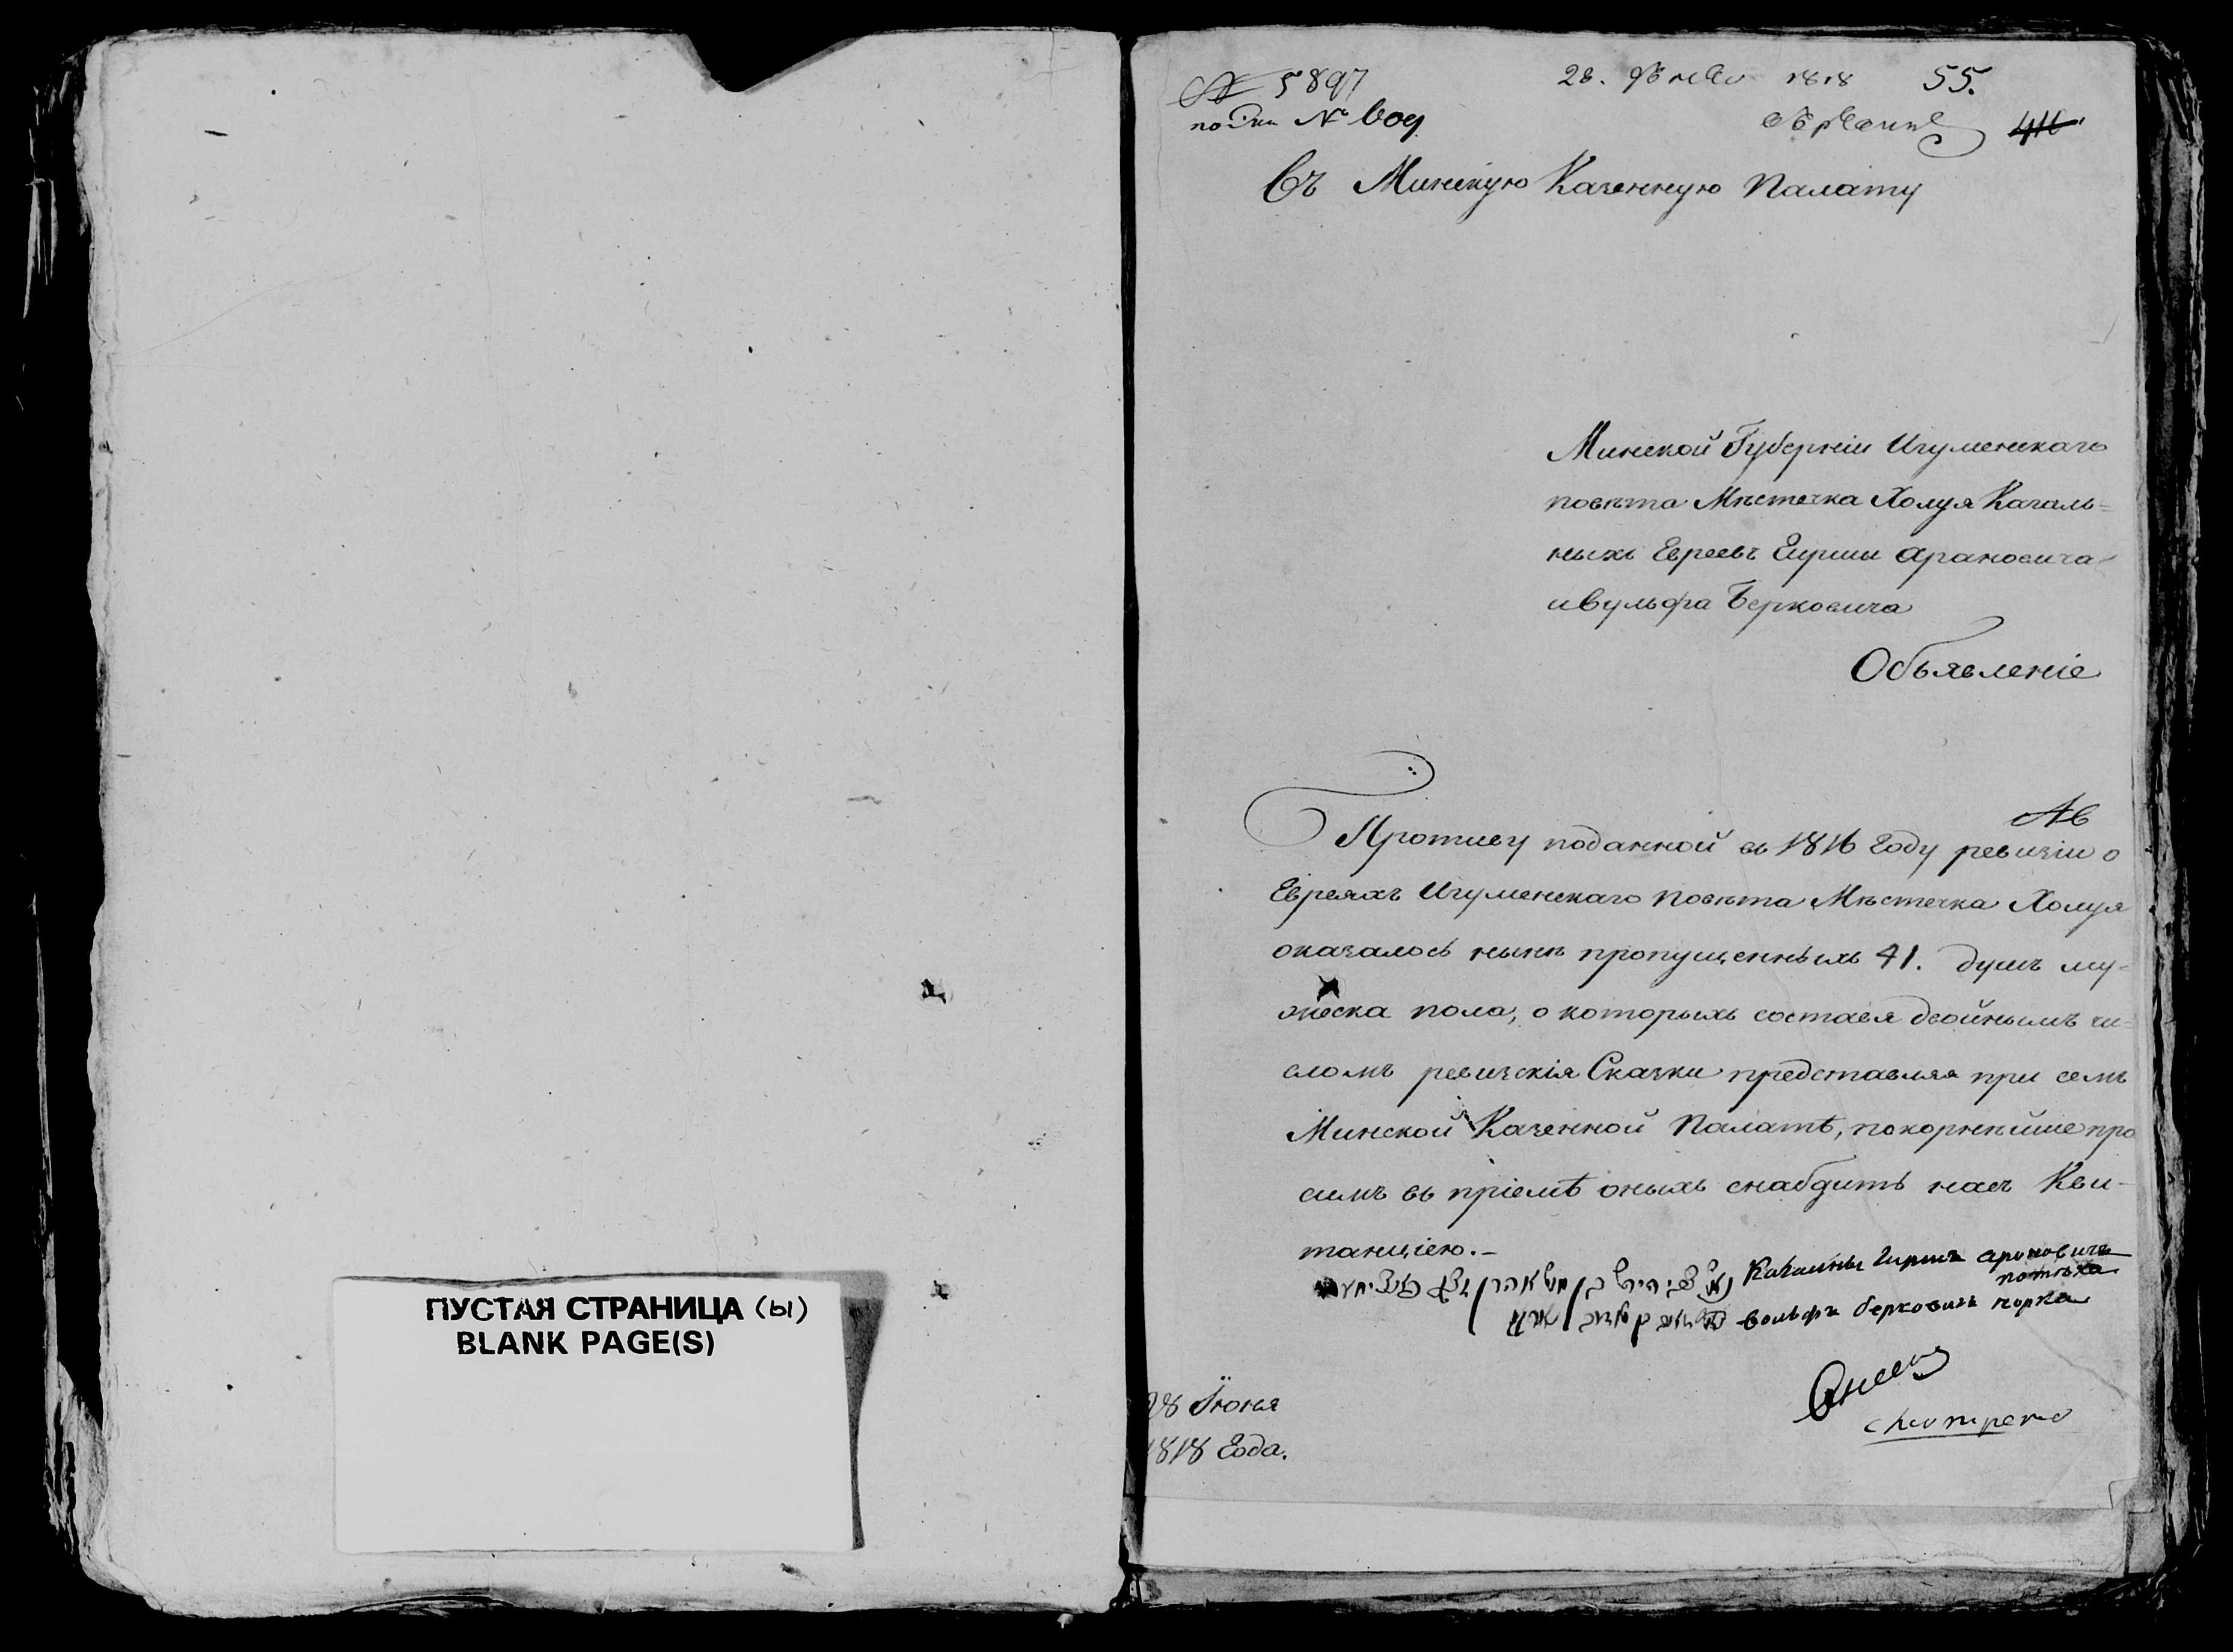 ПУСТАЯ СТРАНИЦА (ы)
BLANK PAGE(S)
№ 5897
28. 1818 55.
№
Въ Минскую Казенную Палату
Минской Губерніи Игуменскаго
повѣта Мѣстечка Холуя Кагаль=
ныхъ Евреевъ Гирши Арановича
и Вульфа Берковича
Объявленіе
Противу поданной въ 1816 году ревизіи о
Евреяхъ Игуменскаго Повѣта Мѣстечка Холуя
оказалось нынѣ пропущенныхъ 41. душъ му-
жеска пола, о которыхъ составя двойнымъ чи=
сломъ ревизскія Сказки представляя при семъ
Минской Казенной Палатѣ, покорнѣйше про
симъ въ пріемѣ оныхъ снабдить насъ Кви-
танціею.-
Кагалны Гирша Ароновичъ
вольфъ берковичъ
28 Іюня
1818 Года.